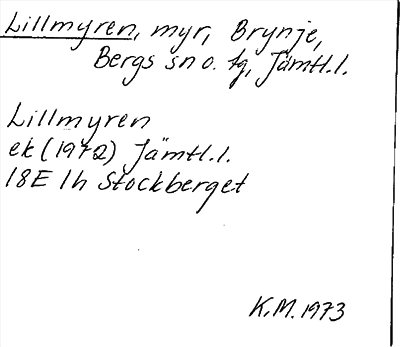 Lillmyren, myr, Brynje,
Bergs sn o. tg, Jämtl.l.
Lillmyren
ek (1972) Jämtl.l.
18E 1h Stockberget
K.M. 1973